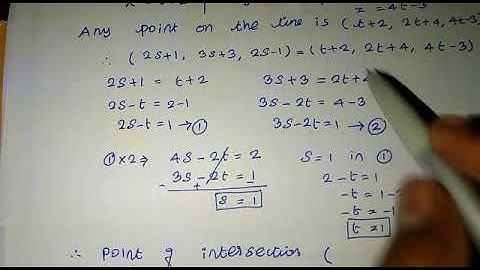 z = 4t-3
Any point on the line is (t+2, 2t+4, 4t-3)
∴ (2s+1, 3s+3, 2s-1) = (t+2, 2t+4, 4t-3)
2s+1 = t+2
2s-t = 2-1
2s-t = 1 → ①
3s+3 = 2t+4
3s-2t = 4-3
3s-2t = 1 → ②
①×2 ⇒ 4s-2t = 2
3s-2t = 1
- +
s = 1
s = 1 in ①
2-t = 1
-t = 1-
-t = -1
t = 1
∴ point of intersection (